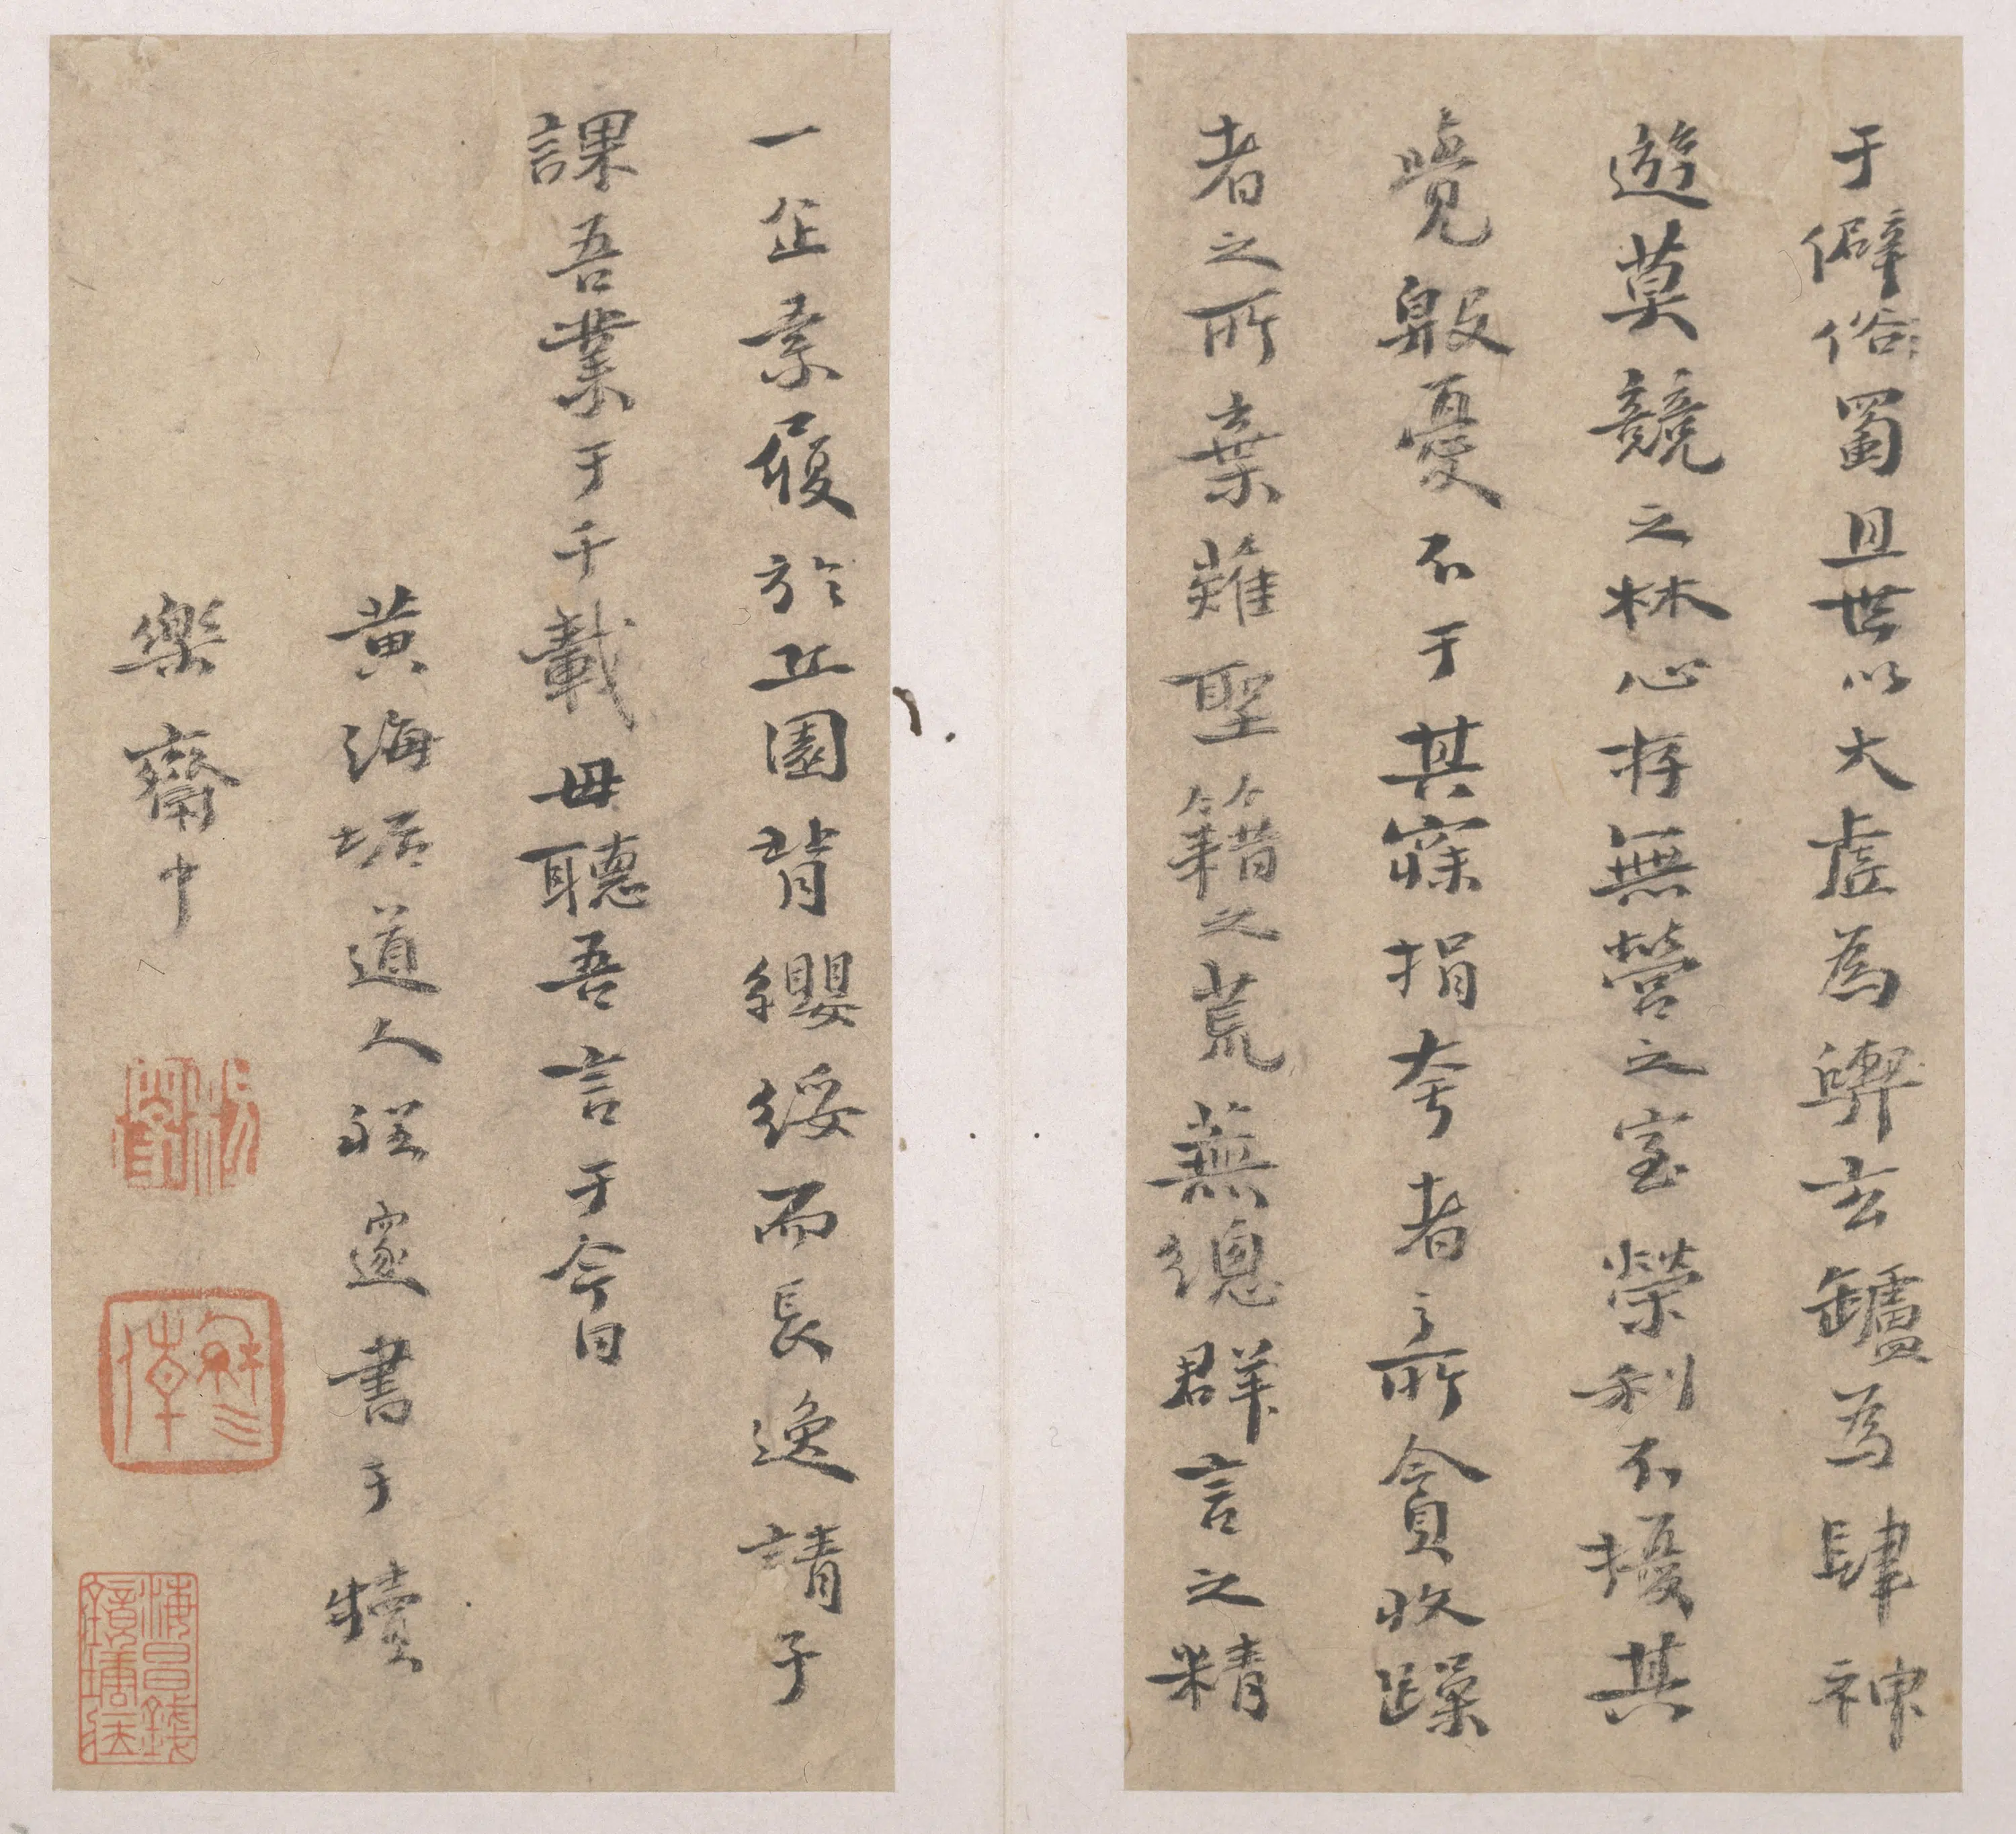 于僻俗蜀且世以大虛為輿玄鑪為肆神
遊莫競之林心存無營之室榮利不擾其
覺殷憂不于其寐捐夸者之所貪收躁
者之所棄薙聖籍之荒蕪總群言之精
一企素履於丘園背纓綏而長逸請子
課吾業于千載毋聽吾言于今日
黃海垢道人程邃書于犢
樂齋中
穆倩
海昌錢鏡塘藏